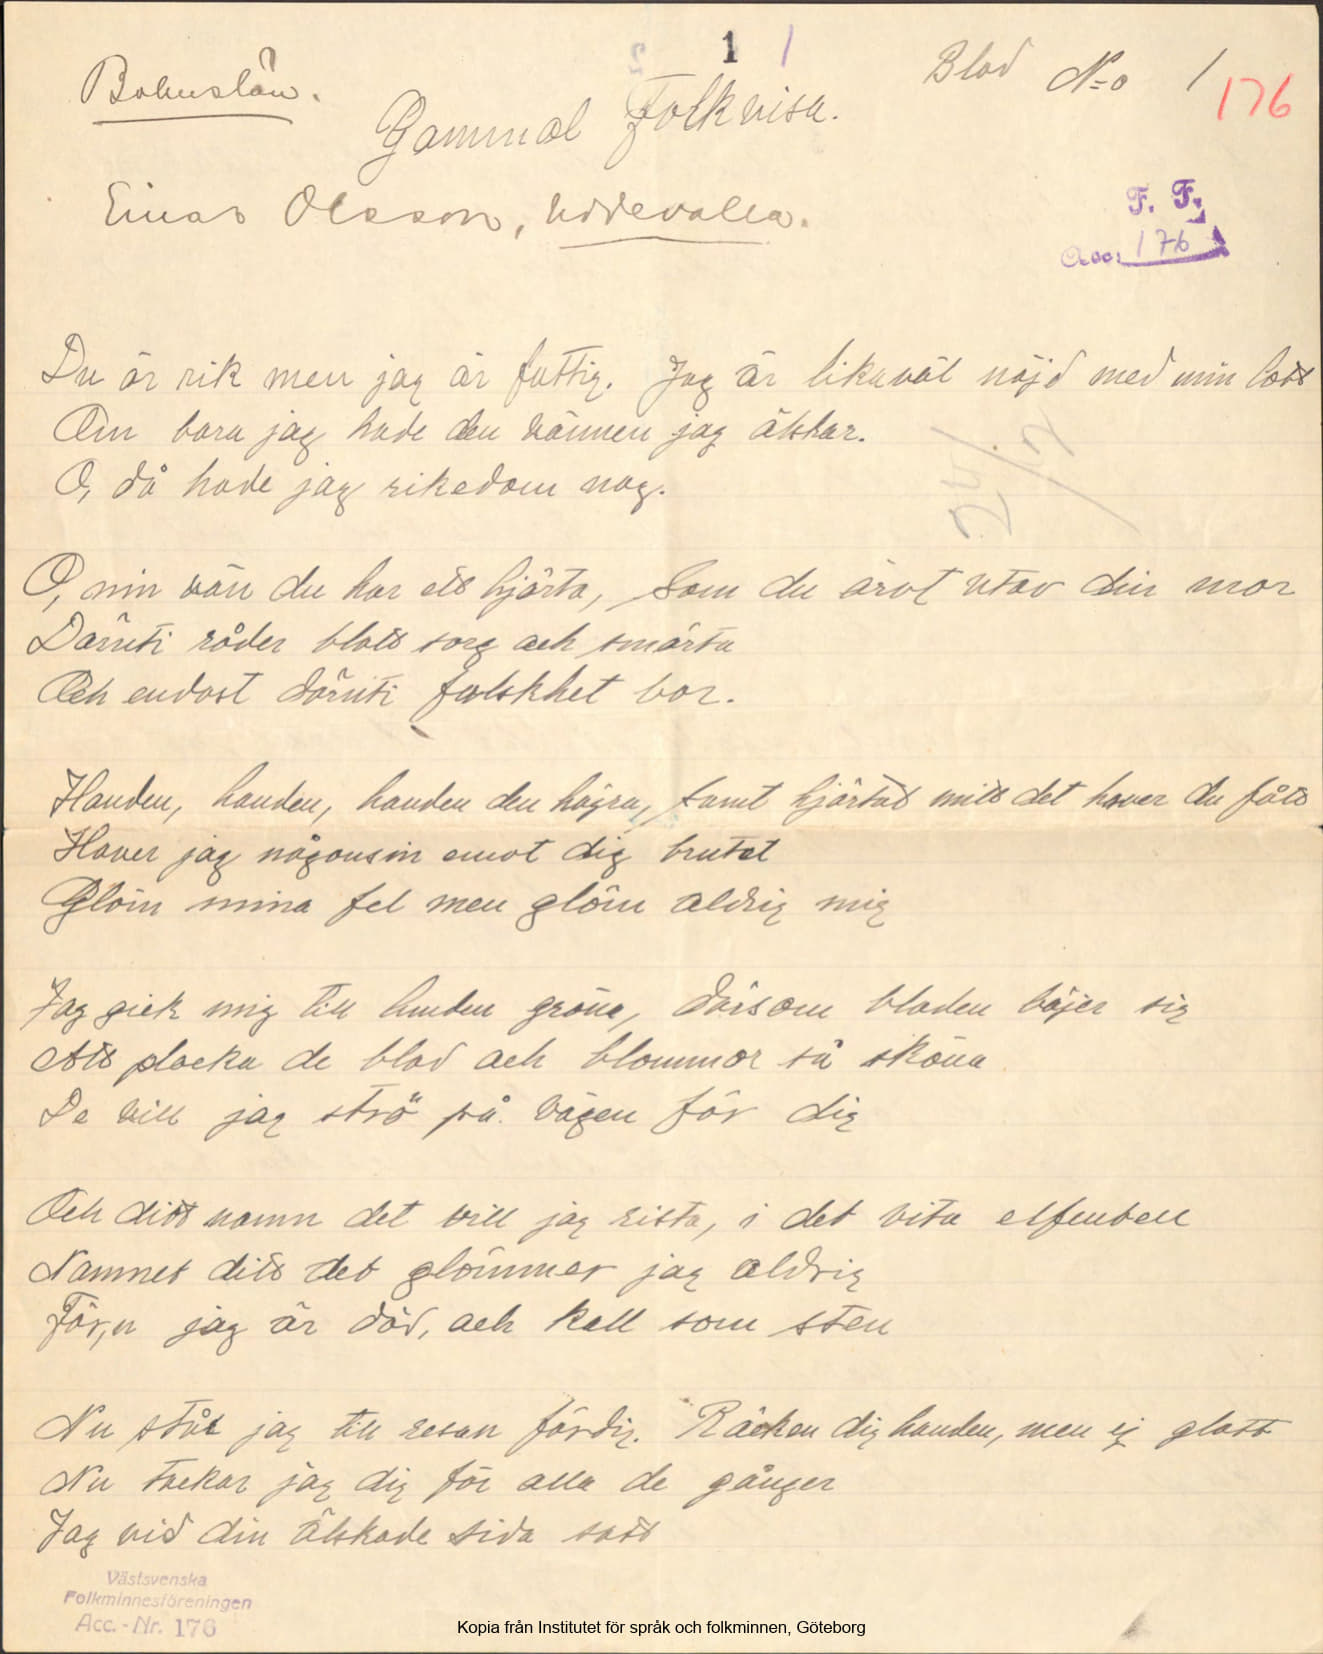 1 1
Blad No 1
176
Bohuslän.
Gammal Folkvisa.
Einar Olsson, Uddevalla.
F. F.
Acc. 176
Du är rik men jag är fattig. Jag är likaväl nöjd med min lott
Om bara jag hade den vännen jag älskar.
O, då hade jag rikedom nog.
24/12
O, min vän du har ett hjärta, Som du ärvt utav din mor
Däruti råder blott sorg och smärta
Och endast däruti falskhet bor.
Handen, handen, handen den högra, samt hjärtat mitt det haver du fått
Haver jag någonsin emot dig brutet
Glöm mina fel men glöm aldrig mig
Jag gick mig till lunden gröna, därsom bladen böjer sig
Att plocka de blad och blommor så sköna
De vill jag strö på vägen för dig
Och ditt namn det vill jag rista, i det vita elfenben
Namnet ditt det glömmer jag aldrig
För,n jag är död, och kall som sten
Nu står jag till resan färdig. Räcken dig handen, men ej glatt
Nu tackar jag dig för alla de gånger
Jag vid din älskade sida satt
Västsvenska
Folkminnesföreningen
Acc.-Nr. 176
Kopia från Institutet för språk och folkminnen, Göteborg